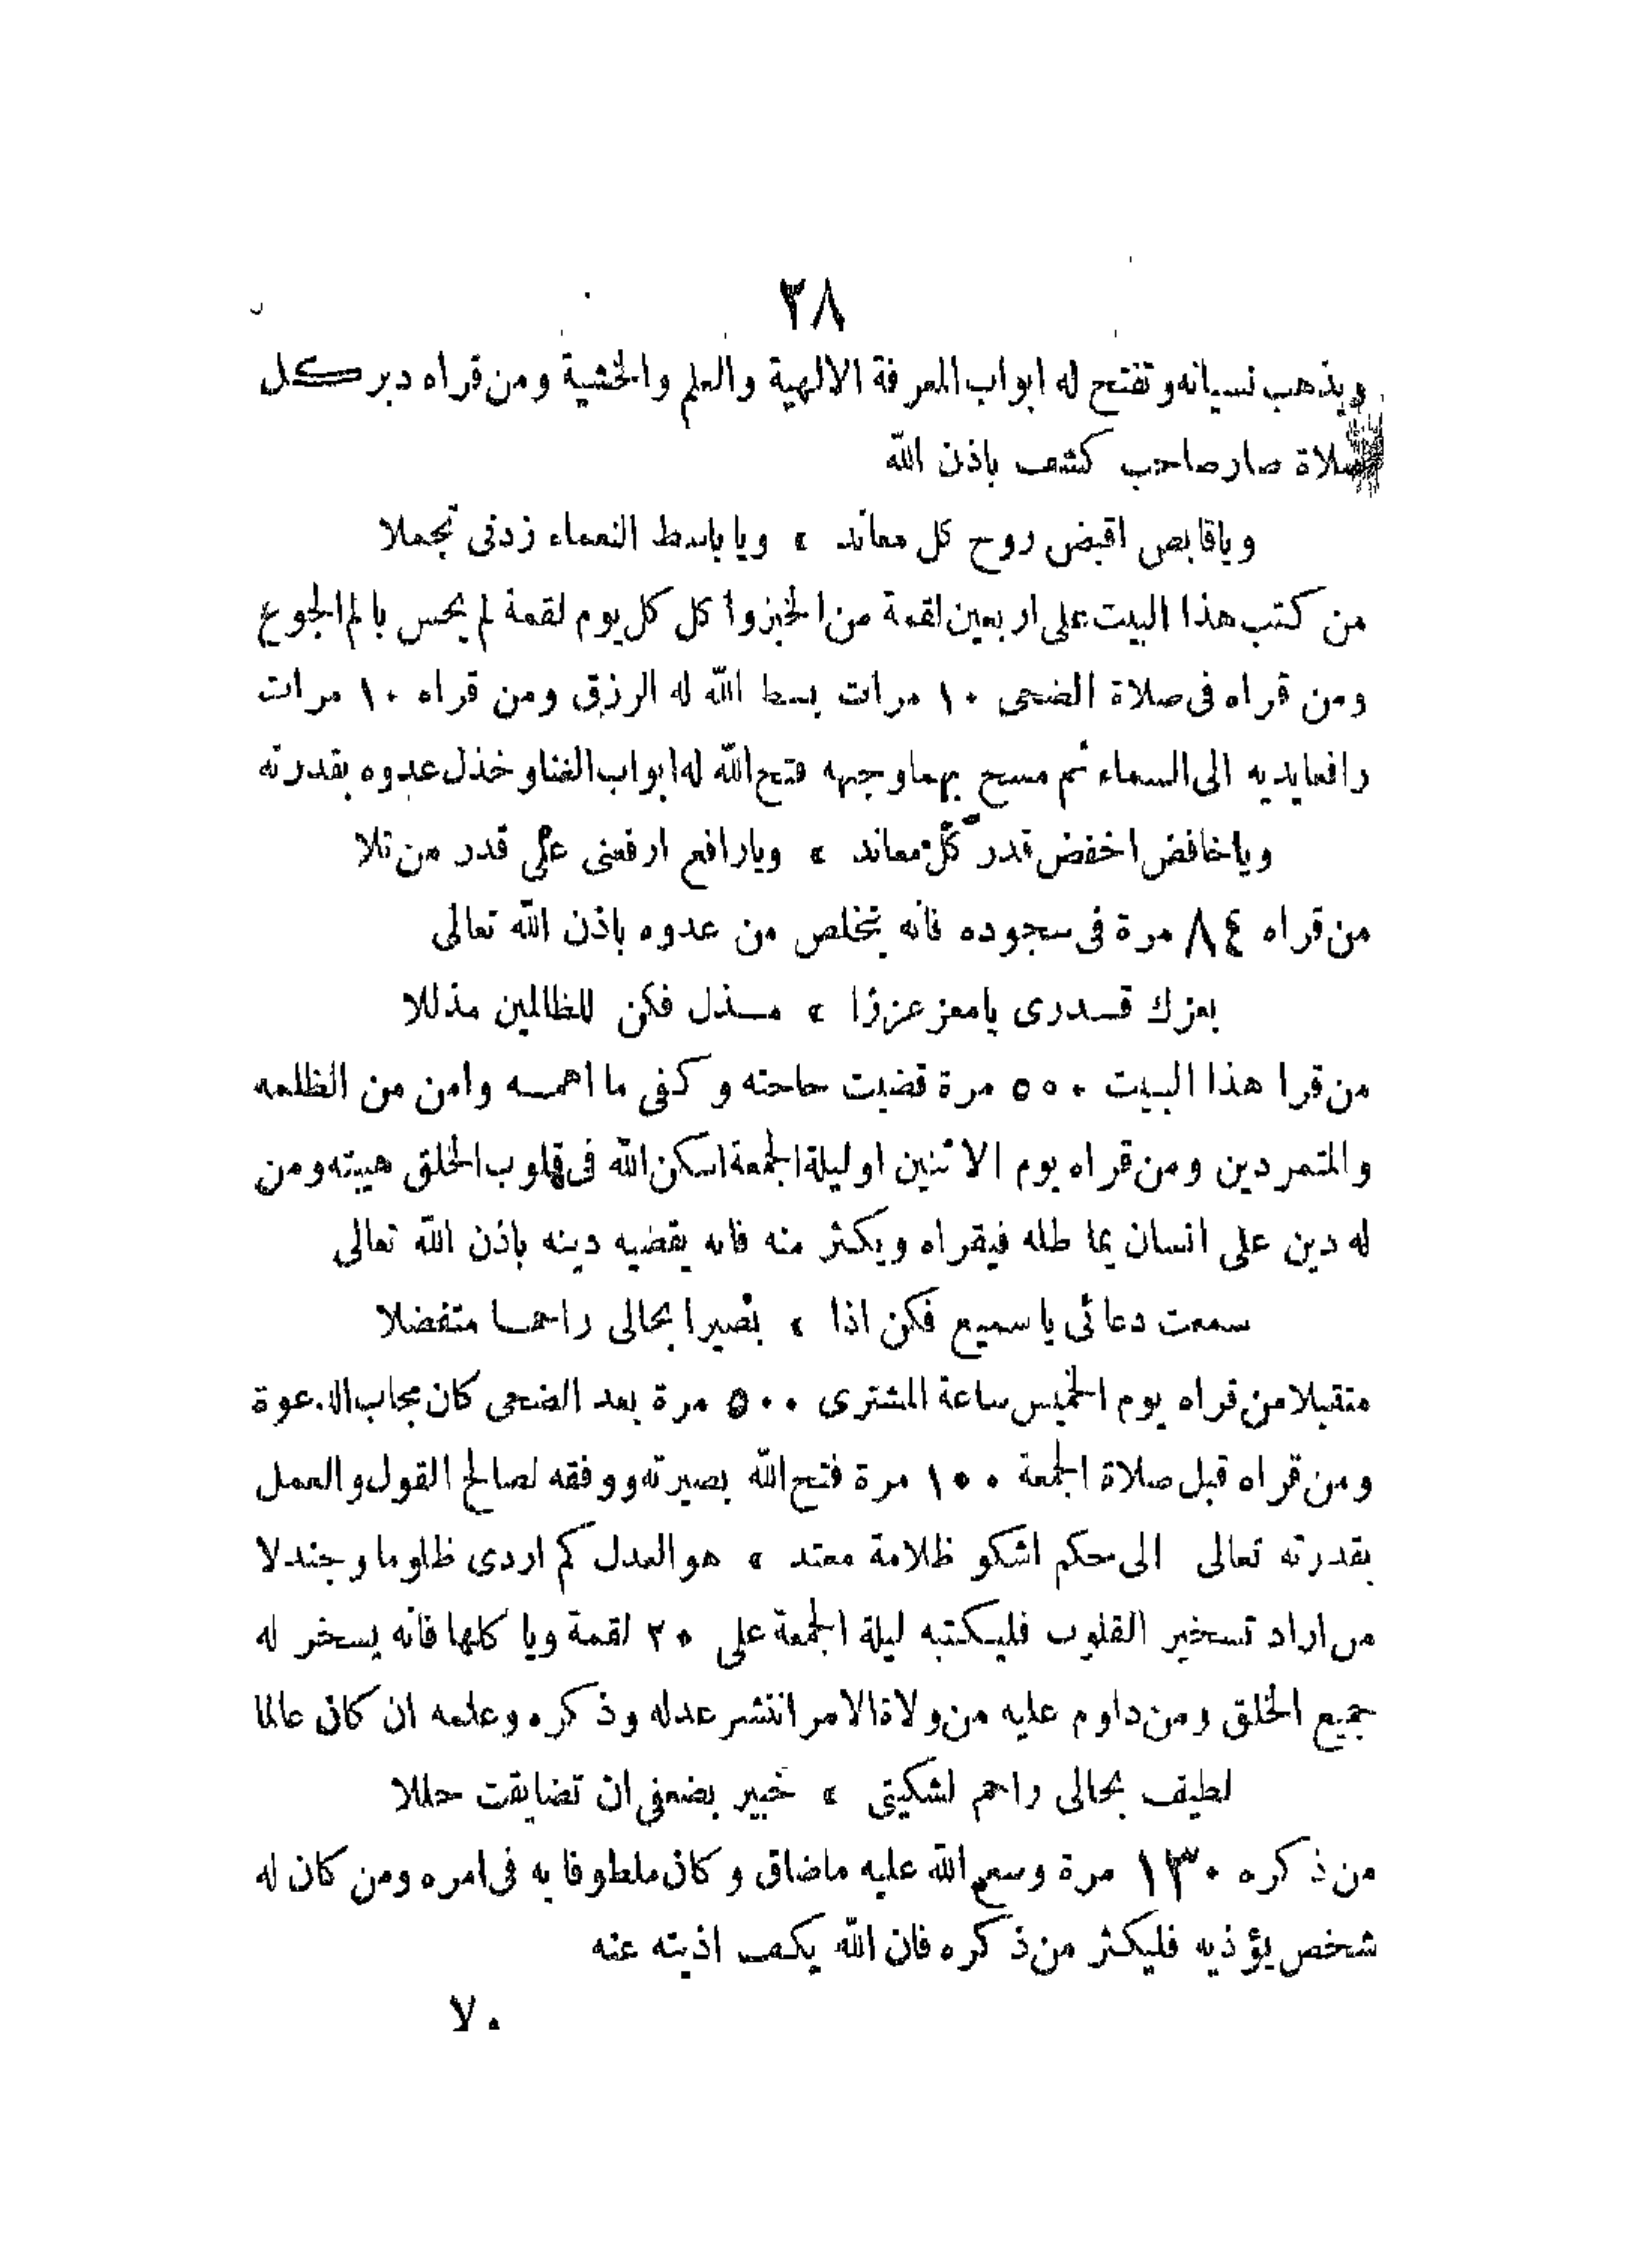 ٢٨
ويذهب نسيانه وتفتح له ابواب المعرفة الالهية والعلم والخشية ومن قراه دبر كل
صلاة صار صاحب كشف باذن الله
وياقابض اقبض روح كل معاند » ويا باسط النعماء زدنى تجملا
من كتب هذا البيت على اربعين لقمة من الخبز واكل كل يوم لقمة لم يحس بالم الجوع
ومن قراه فى صلاة الضحى ١٠ مرات بسط الله له الرزق ومن قراه ١٠ مرات
رافعا يديه الى السماء ثم مسح بهما وجهه فتح الله له ابواب الغنا وخذل عدوه بقدرته
وياخافض اخفض قدر كل معاند » ويارافع ارفعنى على قدر من تلا
من قراه ٨٤ مرة فى سجوده فانه يتخلص من عدوه باذن الله تعالى
بعزك قدرى يامعز عززا » مذل فكن للظالمين مذللا
من قرا هذا البيت ٥٠٠ مرة قضيت حاجته وكفى ما اهمه وامن من الظلمه
والمتمردين ومن قراه يوم الاثنين او ليلة الجمعة اسكن الله فى قلوب الخلق هيبته ومن
له دين على انسان يماطله فيقراه ويكثر منه فانه يقضيه دينه باذن الله تعالى
سمعت دعائى ياسميع فكن اذا » بصيرا بحالى راحما متفضلا
متقبلا من قراه يوم الخميس ساعة المشترى ٥٠٠ مرة بعد الضحى كان مجاب الدعوة
ومن قراه قبل صلاة الجمعة ١٠٠ مرة فتح الله بصيرته ووفقه لصالح القول والعمل
بقدرته تعالى الى حكم اشكو ظلامة معتد » هو العدل كم اردى ظلوما وجندلا
من اراد تسخير القلوب فليكتبه ليلة الجمعة على ٢٠ لقمة وياكلها فانه يسخر له
جميع الخلق ومن داوم عليه من ولاة الامر انتشر عدله وذكره وعلمه ان كان عالما
لطيف بحالى راحم لشكيتى » خبير بضعفى ان تضايقت حللا
من ذكره ١٣٠ مرة وسع الله عليه ماضاق وكان ملطوفا به فى امره ومن كان له
شخص يؤذيه فليكثر من ذكره فان الله يكف اذيته عنه